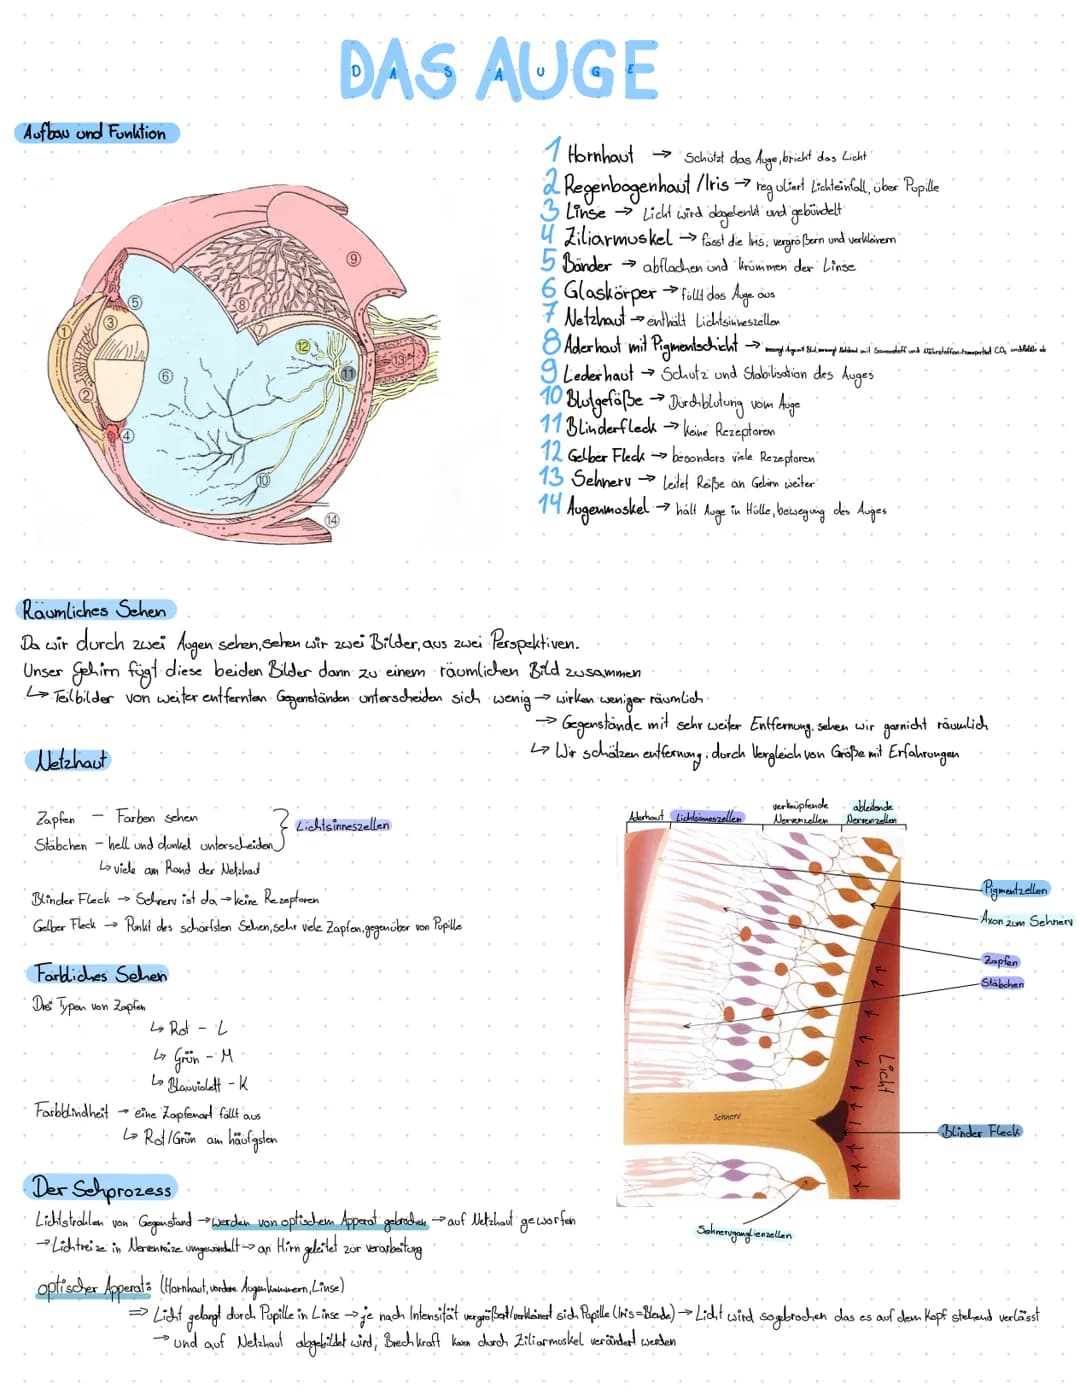 DAS AUGE
DAS AUGE
Aufbau und Funktion
1 Hornhaut → Schützt das Auge, bricht das Licht
2 Regenbogenhaut / Iris → reguliert Lichteinfall, über Pupille
3 Linse → Licht wird abgelenkt und gebündelt
4 Ziliarmuskel → fasst die Iris, vergrößern und verkleinern
5 Bänder → abflachen und krümmen der Linse
6 Glaskörper → füllt das Auge aus
7 Netzhaut → enthält Lichtsinneszellen
8 Aderhaut mit Pigmentschicht → mit Sauerstoff und Nährstoffen, transportiert CO₂
9 Lederhaut → Schutz und Stabilisation des Auges
10 Blutgefäße → Durchblutung vom Auge
11 Blinderfleck → keine Rezeptoren
12 Gelber Fleck → besonders viele Rezeptoren
13 Sehnerv → Leitet Reiße an Gehirn weiter
14 Augenmuskel → hält Auge in Hölle, bewegung des Auges
1
2
3
4
5
6
7
8
9
10
11
12
13
14
Räumliches Sehen
Da wir durch zwei Augen sehen, sehen wir zwei Bilder, aus zwei Perspektiven.
Unser Gehirn fügt diese beiden Bilder dann zu einem räumlichen Bild zusammen
↳ Teilbilder von weiter entfernten Gegenständen unterscheiden sich wenig → wirken weniger räumlich
→ Gegenstände mit sehr weiter Entfernung, sehen wir garnicht räumlich
↳ Wir schätzen entfernung, durch Vergleich von Größe mit Erfahrungen
Netzhaut
Zapfen – Farben sehen
Stäbchen – hell und dunkel unterscheiden } Lichtsinneszellen
↳ viele am Rand der Netzhaut
Blinder Fleck → Sehnerv ist da → keine Rezeptoren
Gelber Fleck → Punkt des schärfsten Sehen, sehr viele Zapfen, gegenüber von Pupille
Aderhaut Lichtsinneszellen verknüpfende Nervenzellen ableitende Nervenzellen
Pigmentzellen
Axon zum Sehnerv
Zapfen
Stäbchen
Licht
Sehnerv
Blinder Fleck
Sehnervganglienzellen
Farbliches Sehen
Drei Typen von Zapfen
↳ Rot – L
↳ Grün – M
↳ Blauviolett – K
Farbblindheit → eine Zapfenart fällt aus
↳ Rot/Grün am häufigsten
Der Sehprozess
Lichtstrahlen von Gegenstand → werden von optischem Apperat gebrochen → auf Netzhaut geworfen
→ Lichtreize in Nervenreize umgewandelt → an Hirn geleitet zur verarbeitung
optischer Apperat: (Hornhaut, vordere Augenkammern, Linse)
⇒ Licht gelangt durch Pupille in Linse → je nach Intensität vergrößert/verkleinert sich Pupille (Iris=Blende) → Licht wird sogebrochen das es auf dem Kopf stehend verlässt
→ und auf Netzhaut abgebildet wird, Brechkraft kann durch Ziliarmuskel verändert werden